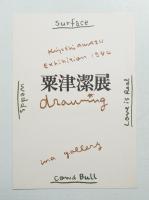 Surface
Kiyoshi Awazu
Exhibition 1984
粟津潔展
drawing
ma gallery
Love is Real
Cow & Bull